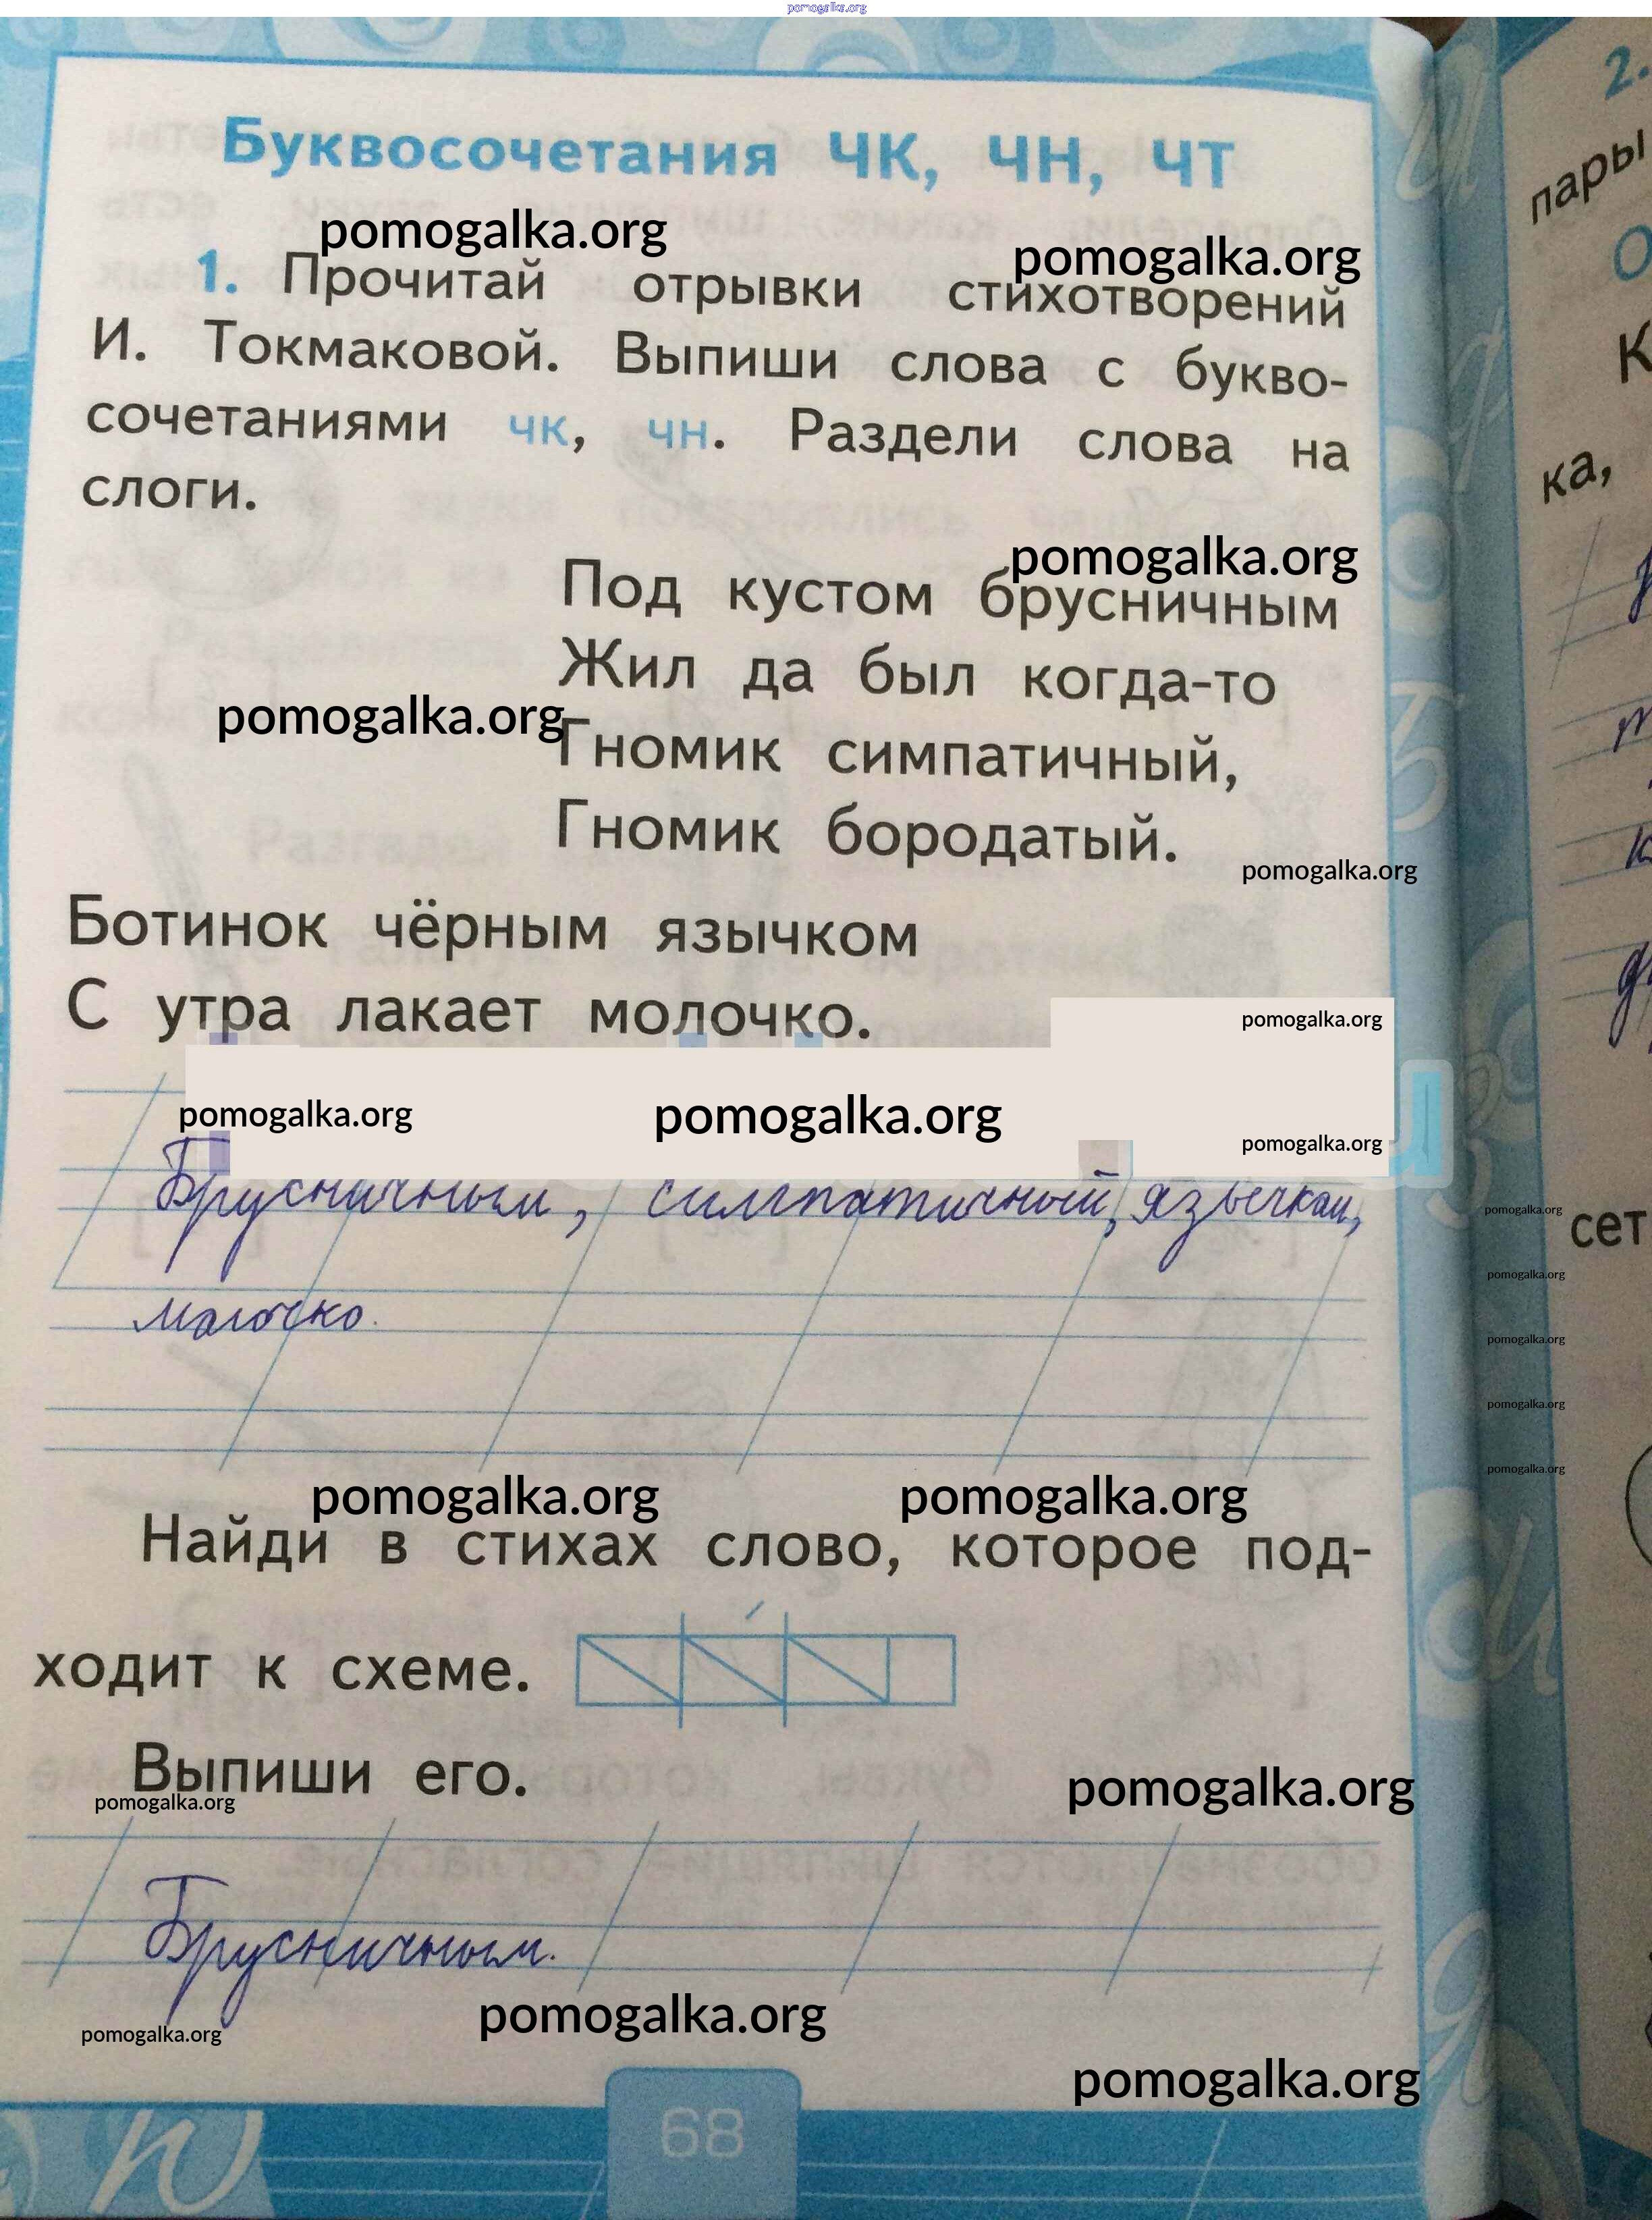 pomogalka.org
Буквосочетания ЧК, ЧН, ЧТ
pomogalka.org
pomogalka.org
1. Прочитай отрывки стихотворений
И. Токмаковой. Выпиши слова с букво-
сочетаниями чк, чн. Раздели слова на
слоги.
pomogalka.org
Под кустом брусничным
Жил да был когда-то
pomogalka.org
Гномик симпатичный,
Гномик бородатый.
pomogalka.org
Ботинок чёрным язычком
С утра лакает молочко.
pomogalka.org
pomogalka.org
pomogalka.org
pomogalka.org
Брусничным, симпатичный, язычком,
молочко.
pomogalka.org
pomogalka.org
Найди в стихах слово, которое под-
ходит к схеме.
Выпиши его.
pomogalka.org
pomogalka.org
Брусничным.
pomogalka.org
pomogalka.org
pomogalka.org
68
2.
пары
О
К
ка,
pomogalka.org
сет
pomogalka.org
pomogalka.org
pomogalka.org
pomogalka.org